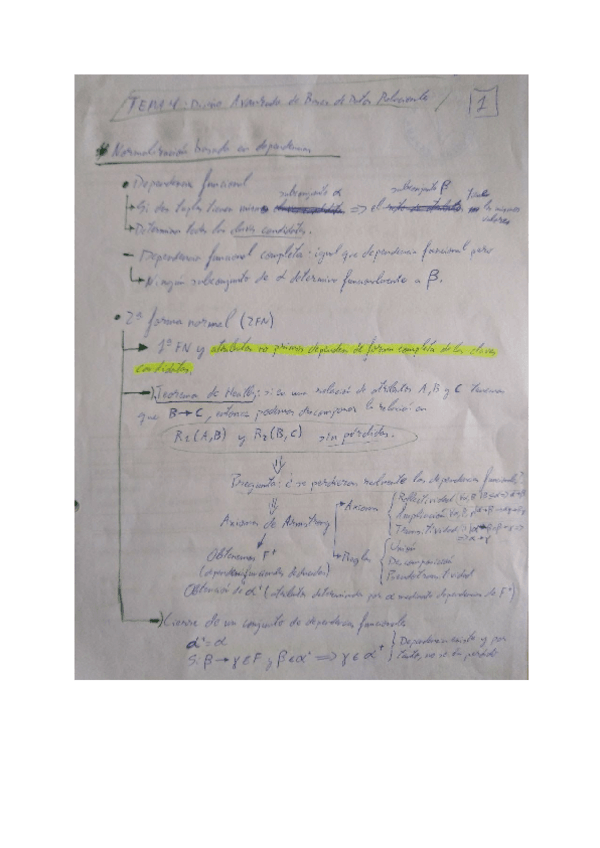 TEMA 4: Diseño Avanzado de Bases de Datos Relacionales 1
Normalización basada en dependencias
Dependencia funcional
subconjunto α subconjunto β tiene
Si dos tuplas tienen mismos ⇒ el la mismos valores
Determina todas las claves candidatas.
Dependencia funcional completa: igual que dependencia funcional pero
Ningún subconjunto de α determina funcionalmente a β.
2ª forma normal (2FN)
1ª FN y atributos no primos dependen de forma completa de las claves
candidatas.
Teorema de Heath: si en una relación de atributos A, B y C tenemos
que B→C, entonces podemos descomponer la relación en
R1(A,B) y R2(B,C) sin pérdidas.
Pregunta: ¿se perdieron realmente las dependencias funcionales?
Axiomas de Armstrong
Axiomas
Reflexividad
Ampliación
Transitividad
Reglas
Unión
Descomposición
Pseudotransitividad
Obtenemos F⁺
(dependencias funcionales deducidas)
Obtención de α⁺ (atributos determinados por α mediante dependencias de F⁺)
Cierre de un conjunto de dependencias funcionales
α⁺=α
Si β→γ∈F y β∈α⁺ ⇒ γ∈α⁺
y por
tanto, no se ha perdido